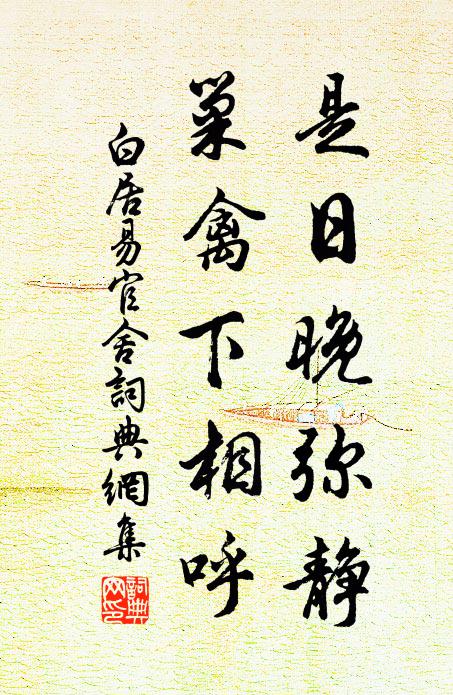 是日晚弥静
巢禽下相呼
白居易官舍詞典網集
詞典
网印